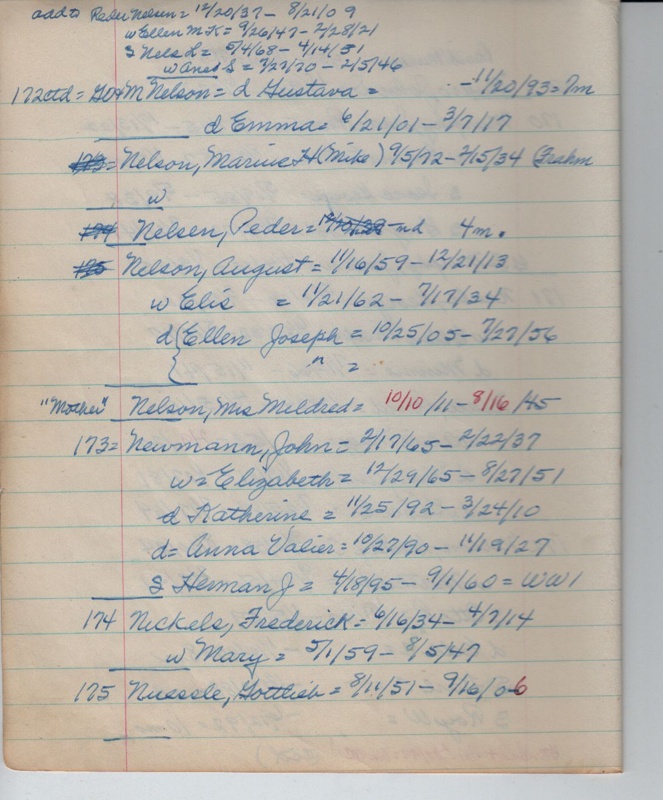 add to Peder Nelsen = 12/20/37 - 8/21/09
w Ellen M K = 9/26/47 - 2/28/21
s Nels L = 5/4/68 - 4/14/51
w S = 7/27/70 - 2/5/46
172ctd = G04 M Nelson = d Gustava = - 11/20/93 = 7m
d Emma = 6/21/01 - 3/7/17
173 = Nelson, Marius H (Mike) 9/5/72 - 2/15/34
w
174 Nelsen, Peder = nd 4m.
175 Nelson, August = 11/16/59 - 12/21/13
w Elis = 11/21/62 - 7/17/34
d { Ellen Joseph = 10/25/05 - 7/27/56
{ " =
"Mother" Nelson, Mrs Mildred = 10/10/11 - 8/16/45
173 = Newmann, John = 2/17/65 - 2/22/37
w = Elizabeth = 12/29/65 - 8/27/51
d Katherine = 11/25/92 - 3/24/10
d = Anna Valier = 10/27/90 - 11/19/27
s Herman J = 4/18/95 - 9/1/60 = WW1
174 Nickels, Frederick = 6/16/34 - 4/7/14
w Mary = 5/1/59 - 8/5/47
175 Nussele, Gottlieb = 8/11/51 - 9/16/06